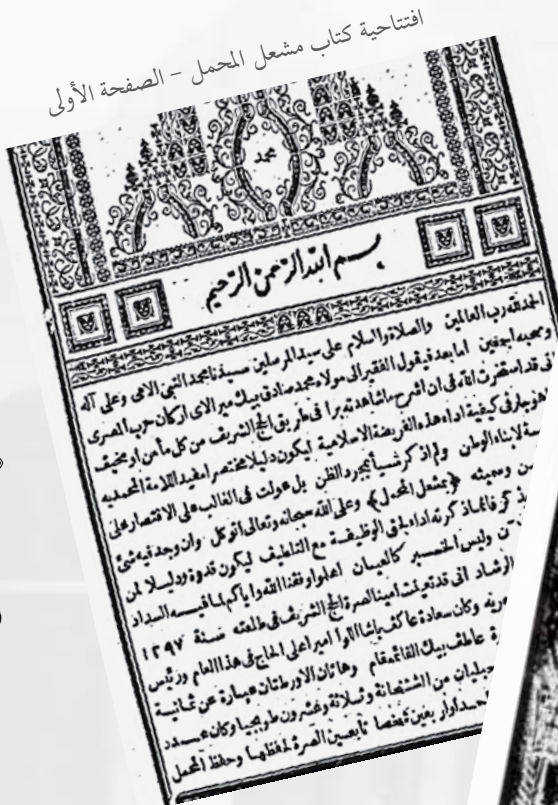 افتتاحية كتاب مشعل المحمل - الصفحة الأولى
محمد
بسم الله الرحمن الرحيم
الحمد لله رب العالمين والصلاة والسلام على سيد المرسلين سيدنا محمد النبي الامي وعلى آله
وصحبه اجمعين اما بعد فيقول الفقير الى مولاه محمد صادق بيك مير الاي اركان حرب المصرى
قد استخرت الله في ان اشرح ما شاهدته برا في طريق الحج الشريف من كل مأمن او مخيف
في كيفية اداء هذه الفريضة الاسلامية ليكون دليلا مختصرا مفيدا للامة المحمديه
لابناء الوطن ولم اذكر شيأ بمجرد الظن بل عولت في الغالب على الاقتصار على
وسميته ﴿بمشعل المحمل﴾ وعلى الله سبحانه وتعالى اتوكل وان وجد فيه شئ
ذكر فانما ذكرته اداء لحق الوظيفة مع التلطيف ليكون قدوة ودليلا لمن
وليس الخبر كالعيان اعلموا وفقنا الله واياكم لما فيه السداد
الرشاد اننى قد تعينت امينا لصرة الحج الشريف في طلعته سنة ١٢٩٧
وكان سعادة عاكف باشا اللوا اميرا على الحاج في هذا العام ورئيس
عاطف بيك القائمقام وهاتان الاورطتان عبارة عن ثمانية
من الششخانة وثلاثة وعشرون طوبجيا وكان عدد
اربعين شخصا تابعين الصرة لحفظها وحفظ المحمل